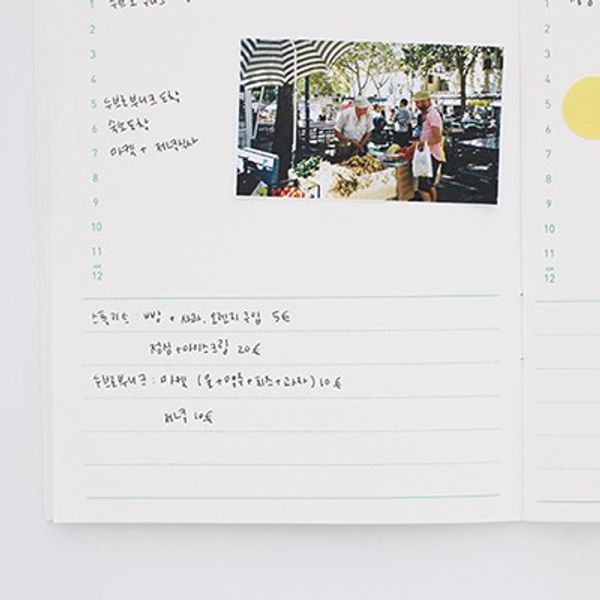 1
2
3
4
5 두브로부니크 도착
6 숙소도착
7 마켓 + 저녁식사
8
9
10
11
12
스플리트 : 빵 + 사과, 오렌지 구입 5€
점심+아이스크림 20€
두브로부니크 : 마켓 (물+맥주+치즈+과자) 10€
저녁 10€
1
2
3
4
5
6
7
8
9
10
11
12